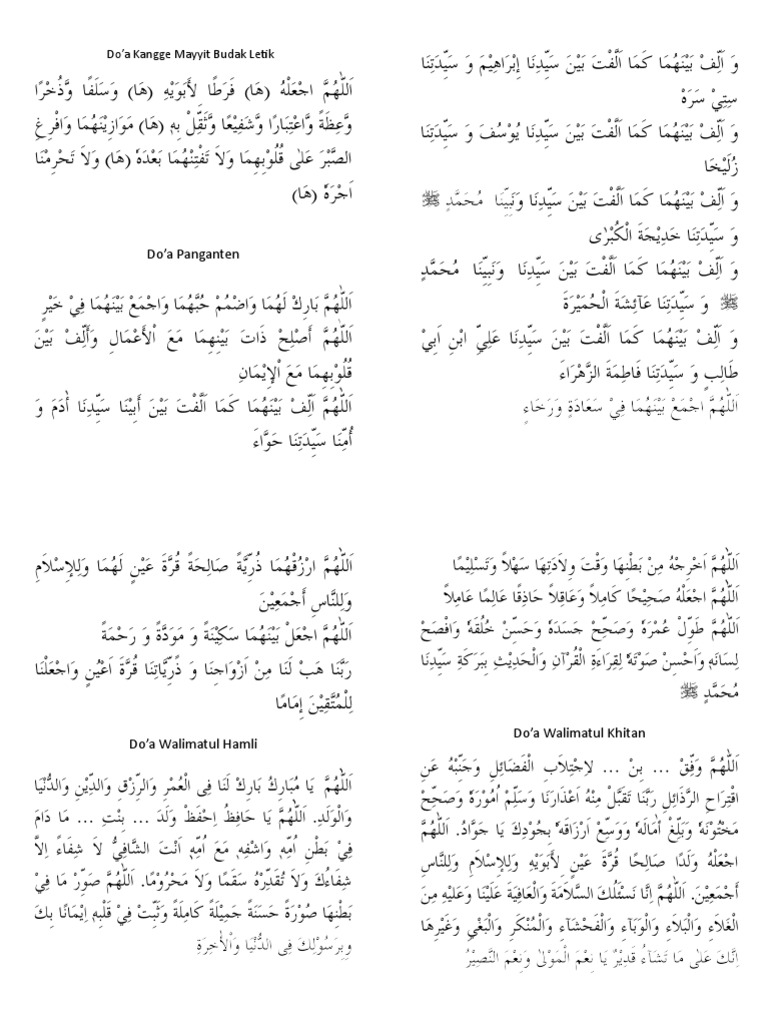 Do'a Kangge Mayyit Budak Letik
اَللّٰهُمَّ اجْعَلْهُ (هَا) فَرَطًا لِأَبَوَيْهِ (هَا) وَسَلَفًا وَّذُخْرًا
وَّعِظَةً وَّاعْتِبَارًا وَّشَفِيْعًا وَّثَقِّلْ بِهٖ (هَا) مَوَازِيْنَهُمَا وَافْرِغِ
الصَّبْرَ عَلٰى قُلُوْبِهِمَا وَلاَ تَفْتِنْهُمَا بَعْدَهٗ (هَا) وَلاَ تَحْرِمْنَا
اَجْرَهٗ (هَا)
Do'a Panganten
اَللّٰهُمَّ بَارِكْ لَهُمَا وَاضْمُمْ حُبَّهُمَا وَاجْمَعْ بَيْنَهُمَا فِيْ خَيْرٍ
اَللّٰهُمَّ أَصْلِحْ ذَاتَ بَيْنِهِمَا مَعَ اْلأَعْمَالِ وَأَلِّفْ بَيْنَ
قُلُوْبِهِمَا مَعَ اْلإِيْمَانِ
اَللّٰهُمَّ اَلِّفْ بَيْنَهُمَا كَمَا اَلَّفْتَ بَيْنَ أَبِيْنَا سَيِّدِنَا أٰدَمَ وَ
أُمِّنَا سَيِّدَتِنَا حَوَّاءَ
وَ اَلِّفْ بَيْنَهُمَا كَمَا اَلَّفْتَ بَيْنَ سَيِّدِنَا إِبْرَاهِيْمَ وَ سَيِّدَتِنَا
سِتِيْ سَرَهْ
وَ اَلِّفْ بَيْنَهُمَا كَمَا اَلَّفْتَ بَيْنَ سَيِّدِنَا يُوْسُفَ وَ سَيِّدَتِنَا
زُلَيْخَا
وَ اَلِّفْ بَيْنَهُمَا كَمَا اَلَّفْتَ بَيْنَ سَيِّدِنَا وَنَبِيِّنَا مُحَمَّدٍ ﷺ
وَ سَيِّدَتِنَا خَدِيْجَةَ الْكُبْرٰى
وَ اَلِّفْ بَيْنَهُمَا كَمَا اَلَّفْتَ بَيْنَ سَيِّدِنَا وَنَبِيِّنَا مُحَمَّدٍ
ﷺ وَ سَيِّدَتِنَا عَآئِشَةَ الْحُمَيْرَةَ
وَ اَلِّفْ بَيْنَهُمَا كَمَا اَلَّفْتَ بَيْنَ سَيِّدِنَا عَلِيِّ ابْنِ اَبِيْ
طَالِبٍ وَ سَيِّدَتِنَا فَاطِمَةَ الزَّهْرَاءَ
اَللّٰهُمَّ اجْمَعْ بَيْنَهُمَا فِيْ سَعَادَةٍ وَرَخَاءٍ
اَللّٰهُمَّ ارْزُقْهُمَا ذُرِّيَّةً صَالِحَةً قُرَّةَ عَيْنٍ لَهُمَا وَلِلإِسْلاَمِ
وَلِلنَّاسِ أَجْمَعِيْنَ
اَللّٰهُمَّ اجْعَلْ بَيْنَهُمَا سَكِيْنَةً وَ مَوَدَّةً وَ رَحْمَةً
رَبَّنَا هَبْ لَنَا مِنْ اَزْوَاجِنَا وَ ذُرِّيَّاتِنَا قُرَّةَ اَعْيُنٍ وَاجْعَلْنَا
لِلْمُتَّقِيْنَ إِمَامًا
Do'a Walimatul Hamli
اَللّٰهُمَّ يَا مُبَارِكُ بَارِكْ لَنَا فِى الْعُمْرِ وَالرِّزْقِ وَالدِّيْنِ وَالدُّنْيَا
وَالْوَلَدِ. اَللّٰهُمَّ يَا حَافِظُ اِحْفَظْ وَلَدَ ... بِنْتِ ... مَا دَامَ
فِيْ بَطْنِ اُمِّهٖ وَاشْفِهٖ مَعَ اُمِّهٖ اَنْتَ الشَّافِيُّ لاَ شِفَاءً اِلاَّ
شِفَاءُكَ وَلاَ تُقَدِّرْهُ سَقَمًا وَلاَ مَحْرُوْمًا. اَللّٰهُمَّ صَوِّرْ مَا فِيْ
بَطْنِهَا صُوْرَةً حَسَنَةً جَمِيْلَةً كَامِلَةً وَثَبِّتْ فِيْ قَلْبِهٖ اِيْمَانًا بِكَ
وَبِرَسُوْلِكَ فِى الدُّنْيَا وَاْلأٰخِرَةِ
اَللّٰهُمَّ اَخْرِجْهُ مِنْ بَطْنِهَا وَقْتَ وِلاَدَتِهَا سَهْلاً وَتَسْلِيْمًا
اَللّٰهُمَّ اجْعَلْهُ صَحِيْحًا كَامِلاً وَعَاقِلاً حَاذِقًا عَالِمًا عَامِلاً
اَللّٰهُمَّ طَوِّلْ عُمْرَهٗ وَصَحِّحْ جَسَدَهٗ وَحَسِّنْ خُلُقَهٗ وَافْصَحْ
لِسَانَهٖ وَاَحْسِنْ صَوْتَهٗ لِقِرَاءَةِ الْقُرْآنِ وَالْحَدِيْثِ بِبَرَكَةِ سَيِّدِنَا
مُحَمَّدٍ ﷺ
Do'a Walimatul Khitan
اَللّٰهُمَّ وَفِّقْ ... بِنْ ... لاِجْتِلاَبِ الْفَضَائِلِ وَجَنِّبْهُ عَنِ
اقْتِرَاحِ الرَّذَائِلِ رَبَّنَا تَقَبَّلْ مِنْهُ اَعْذَارَنَا وَسَلِّمْ اُمُوْرَهٗ وَصَحِّحْ
مَخْتُوْنَهٗ وَبَلِّغْ اٰمَالَهٗ وَوَسِّعْ اَرْزَاقَهٗ بِجُوْدِكَ يَا جَوَّادُ. اَللّٰهُمَّ
اجْعَلْهُ وَلَدًا صَالِحًا قُرَّةَ عَيْنٍ لأَبَوَيْهِ وَلِلإِسْلاَمِ وَلِلنَّاسِ
أَجْمَعِيْنَ. اَللّٰهُمَّ اِنَّا نَسْئَلُكَ السَّلاَمَةَ وَالْعَافِيَةَ عَلَيْنَا وَعَلَيْهِ مِنَ
الْغَلاَءِ وَالْبَلاَءِ وَالْوَبَآءِ وَالْفَحْشَآءِ وَالْمُنْكَرِ وَالْبَغْيِ وَغَيْرِهَا
اِنَّكَ عَلٰى مَا تَشَآءُ قَدِيْرٌ يَا نِعْمَ الْمَوْلٰى وَنِعْمَ النَّصِيْرُ